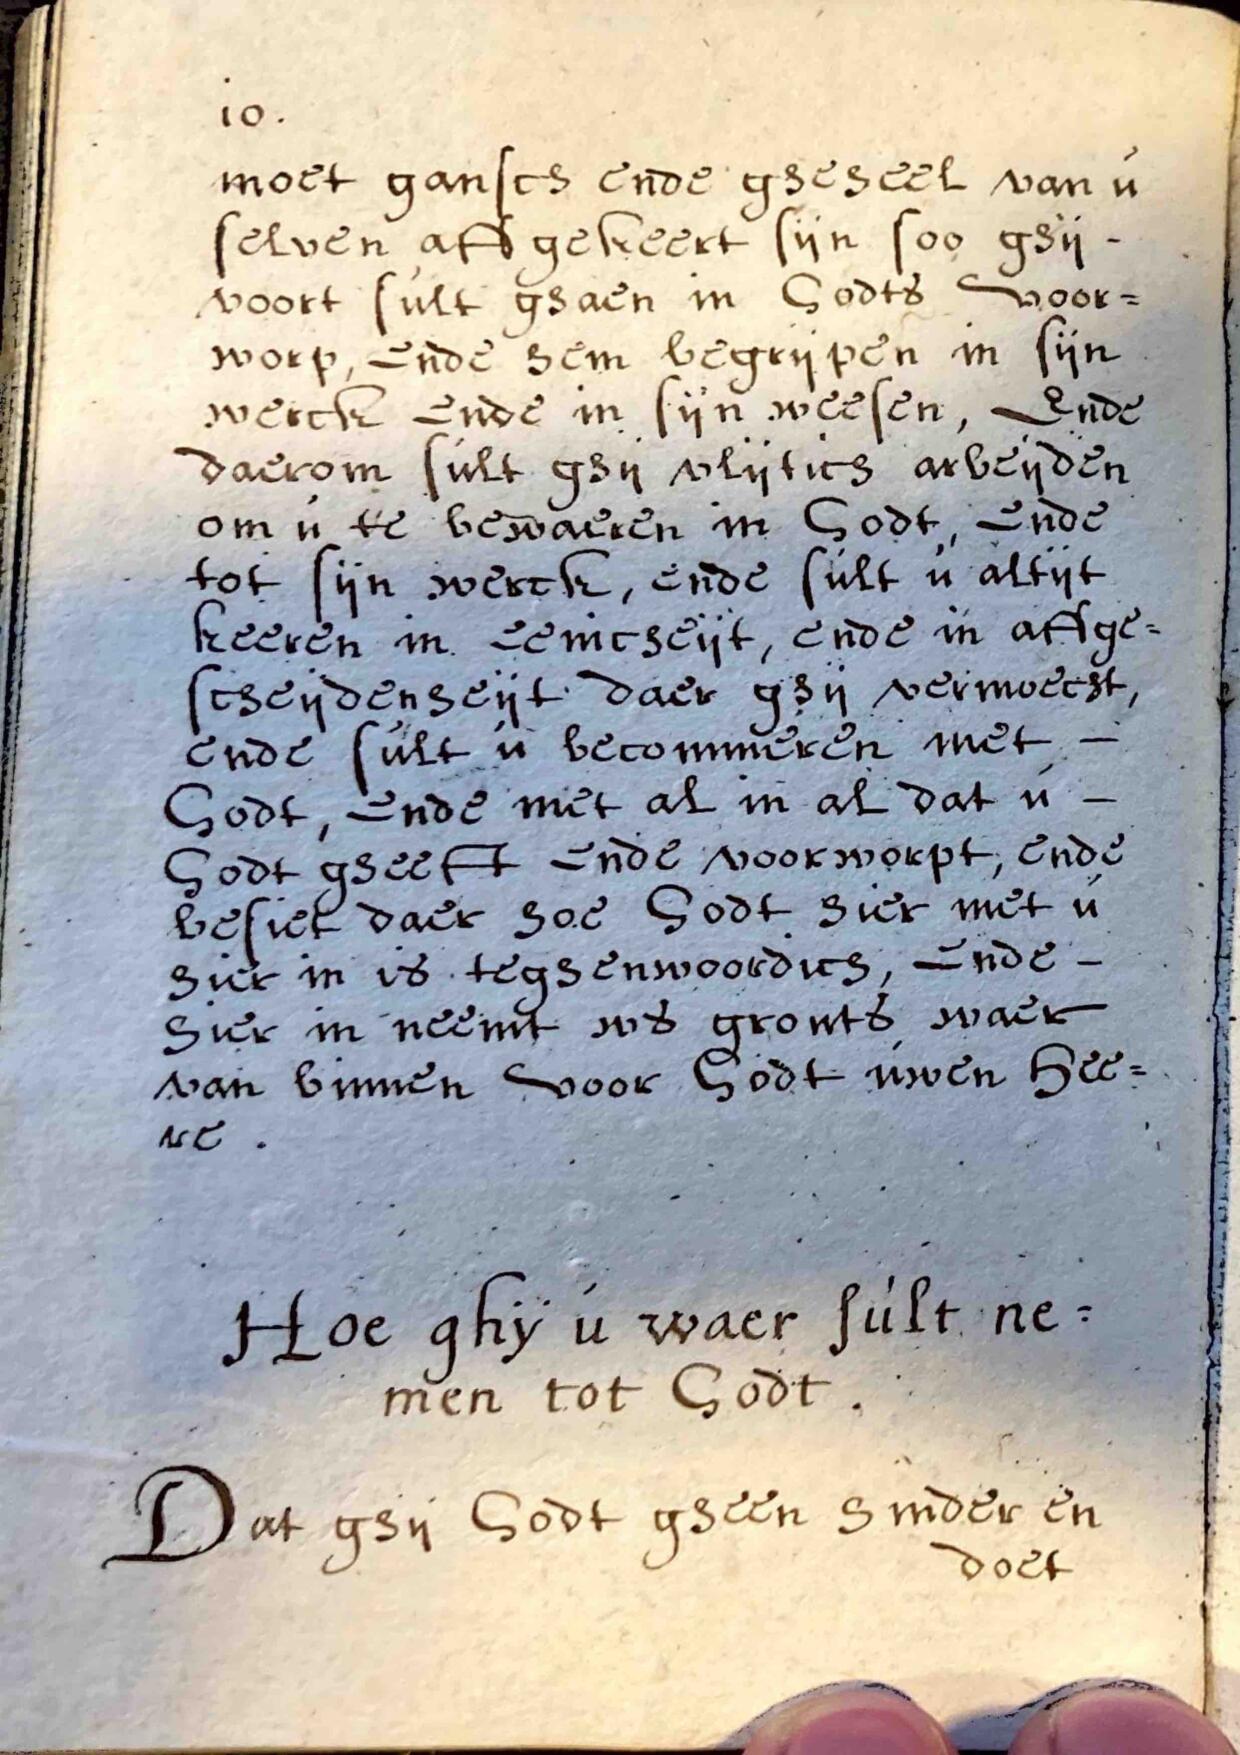 10.
moet gansch ende gheheel van ú
selven aff gekeert sijn soo ghij -
voort súlt ghaen in Godts voor=
worp, ende hem begrijpen in sijn
werck ende in sijn weesen, Ende
daerom súlt ghij vlijtich arbeijden
om ú te bewaeren in Godt, ende
tot sijn werck, ende súlt ú altijt
keeren in eenicheijt, ende in affge=
scheijdenheijt daer ghij vermoecht,
ende súlt ú becommeren met -
Godt, ende met al in al dat ú -
Godt gheeft ende voorworpt, ende
besiet daer hoe Godt hier met ú
hier in is teghenwoordich, ende -
hier in neemt ws gronts waer
van binnen voor Godt úwen Hee=
re .
Hoe ghÿ ú waer súlt ne=
men tot Godt .
Dat ghij Godt gheen hinder en
doet